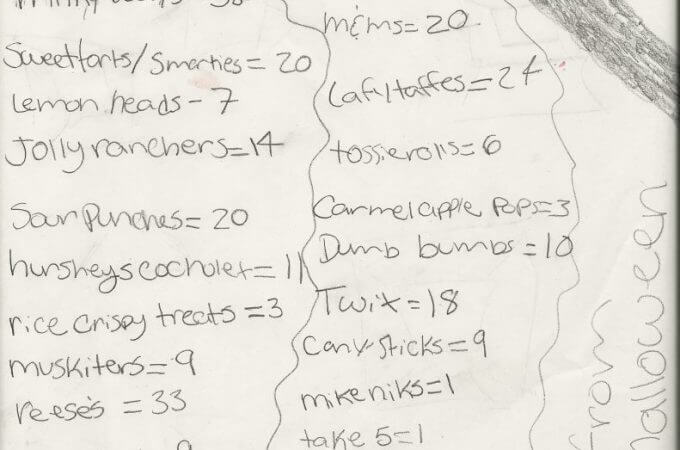 Sweettarts/Smarties = 20
Lemon heads - 7
Jolly ranchers = 14
Sour Punches = 20
hursheys cocholet = 11
rice crispy treats = 3
muskiters = 9
reese's = 33
m&ms = 20
Lafy taffes = 24
tossierolls = 6
Carmel apple Pops = 3
Dumb bumbs = 10
Twix = 18
Cany Sticks = 9
mikeniks = 1
take 5 = 1
From
halloween